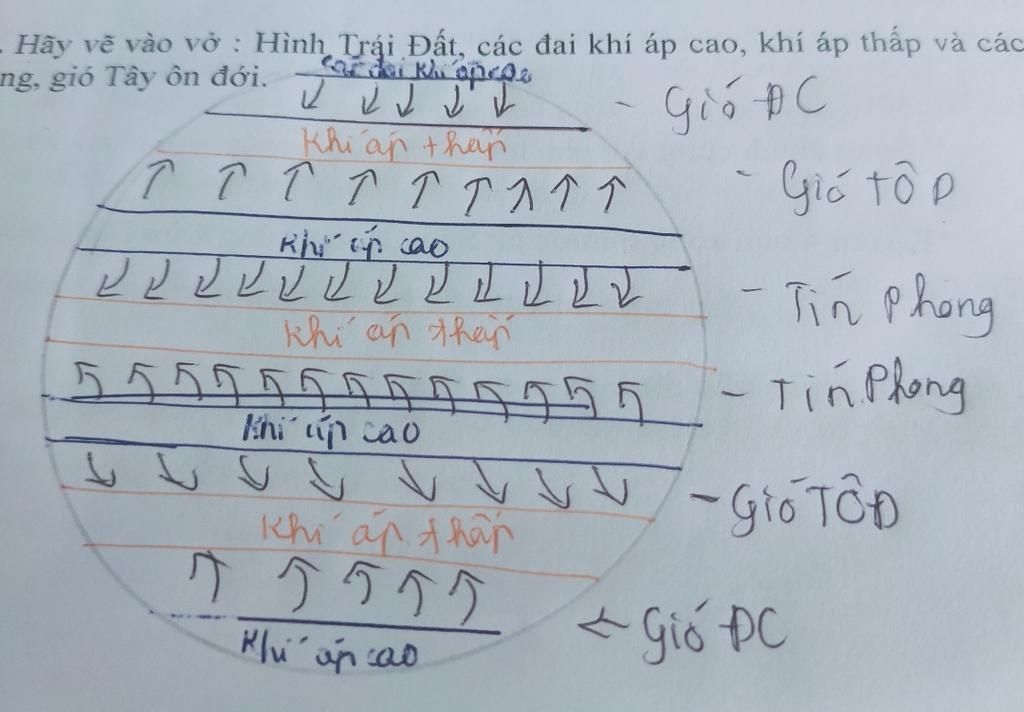 . Hãy vẽ vào vở : Hình Trái Đất, các đai khí áp cao, khí áp thấp và các
ng, gió Tây ôn đới.
các đai khí áp cao
- Gió ĐC
Khí áp thấp
- Gió TÔĐ
Khí áp cao
- Tín Phong
Khí áp thấp
- Tín Phong
Khí áp cao
- Gió TÔĐ
Khí áp thấp
← Gió ĐC
Khí áp cao